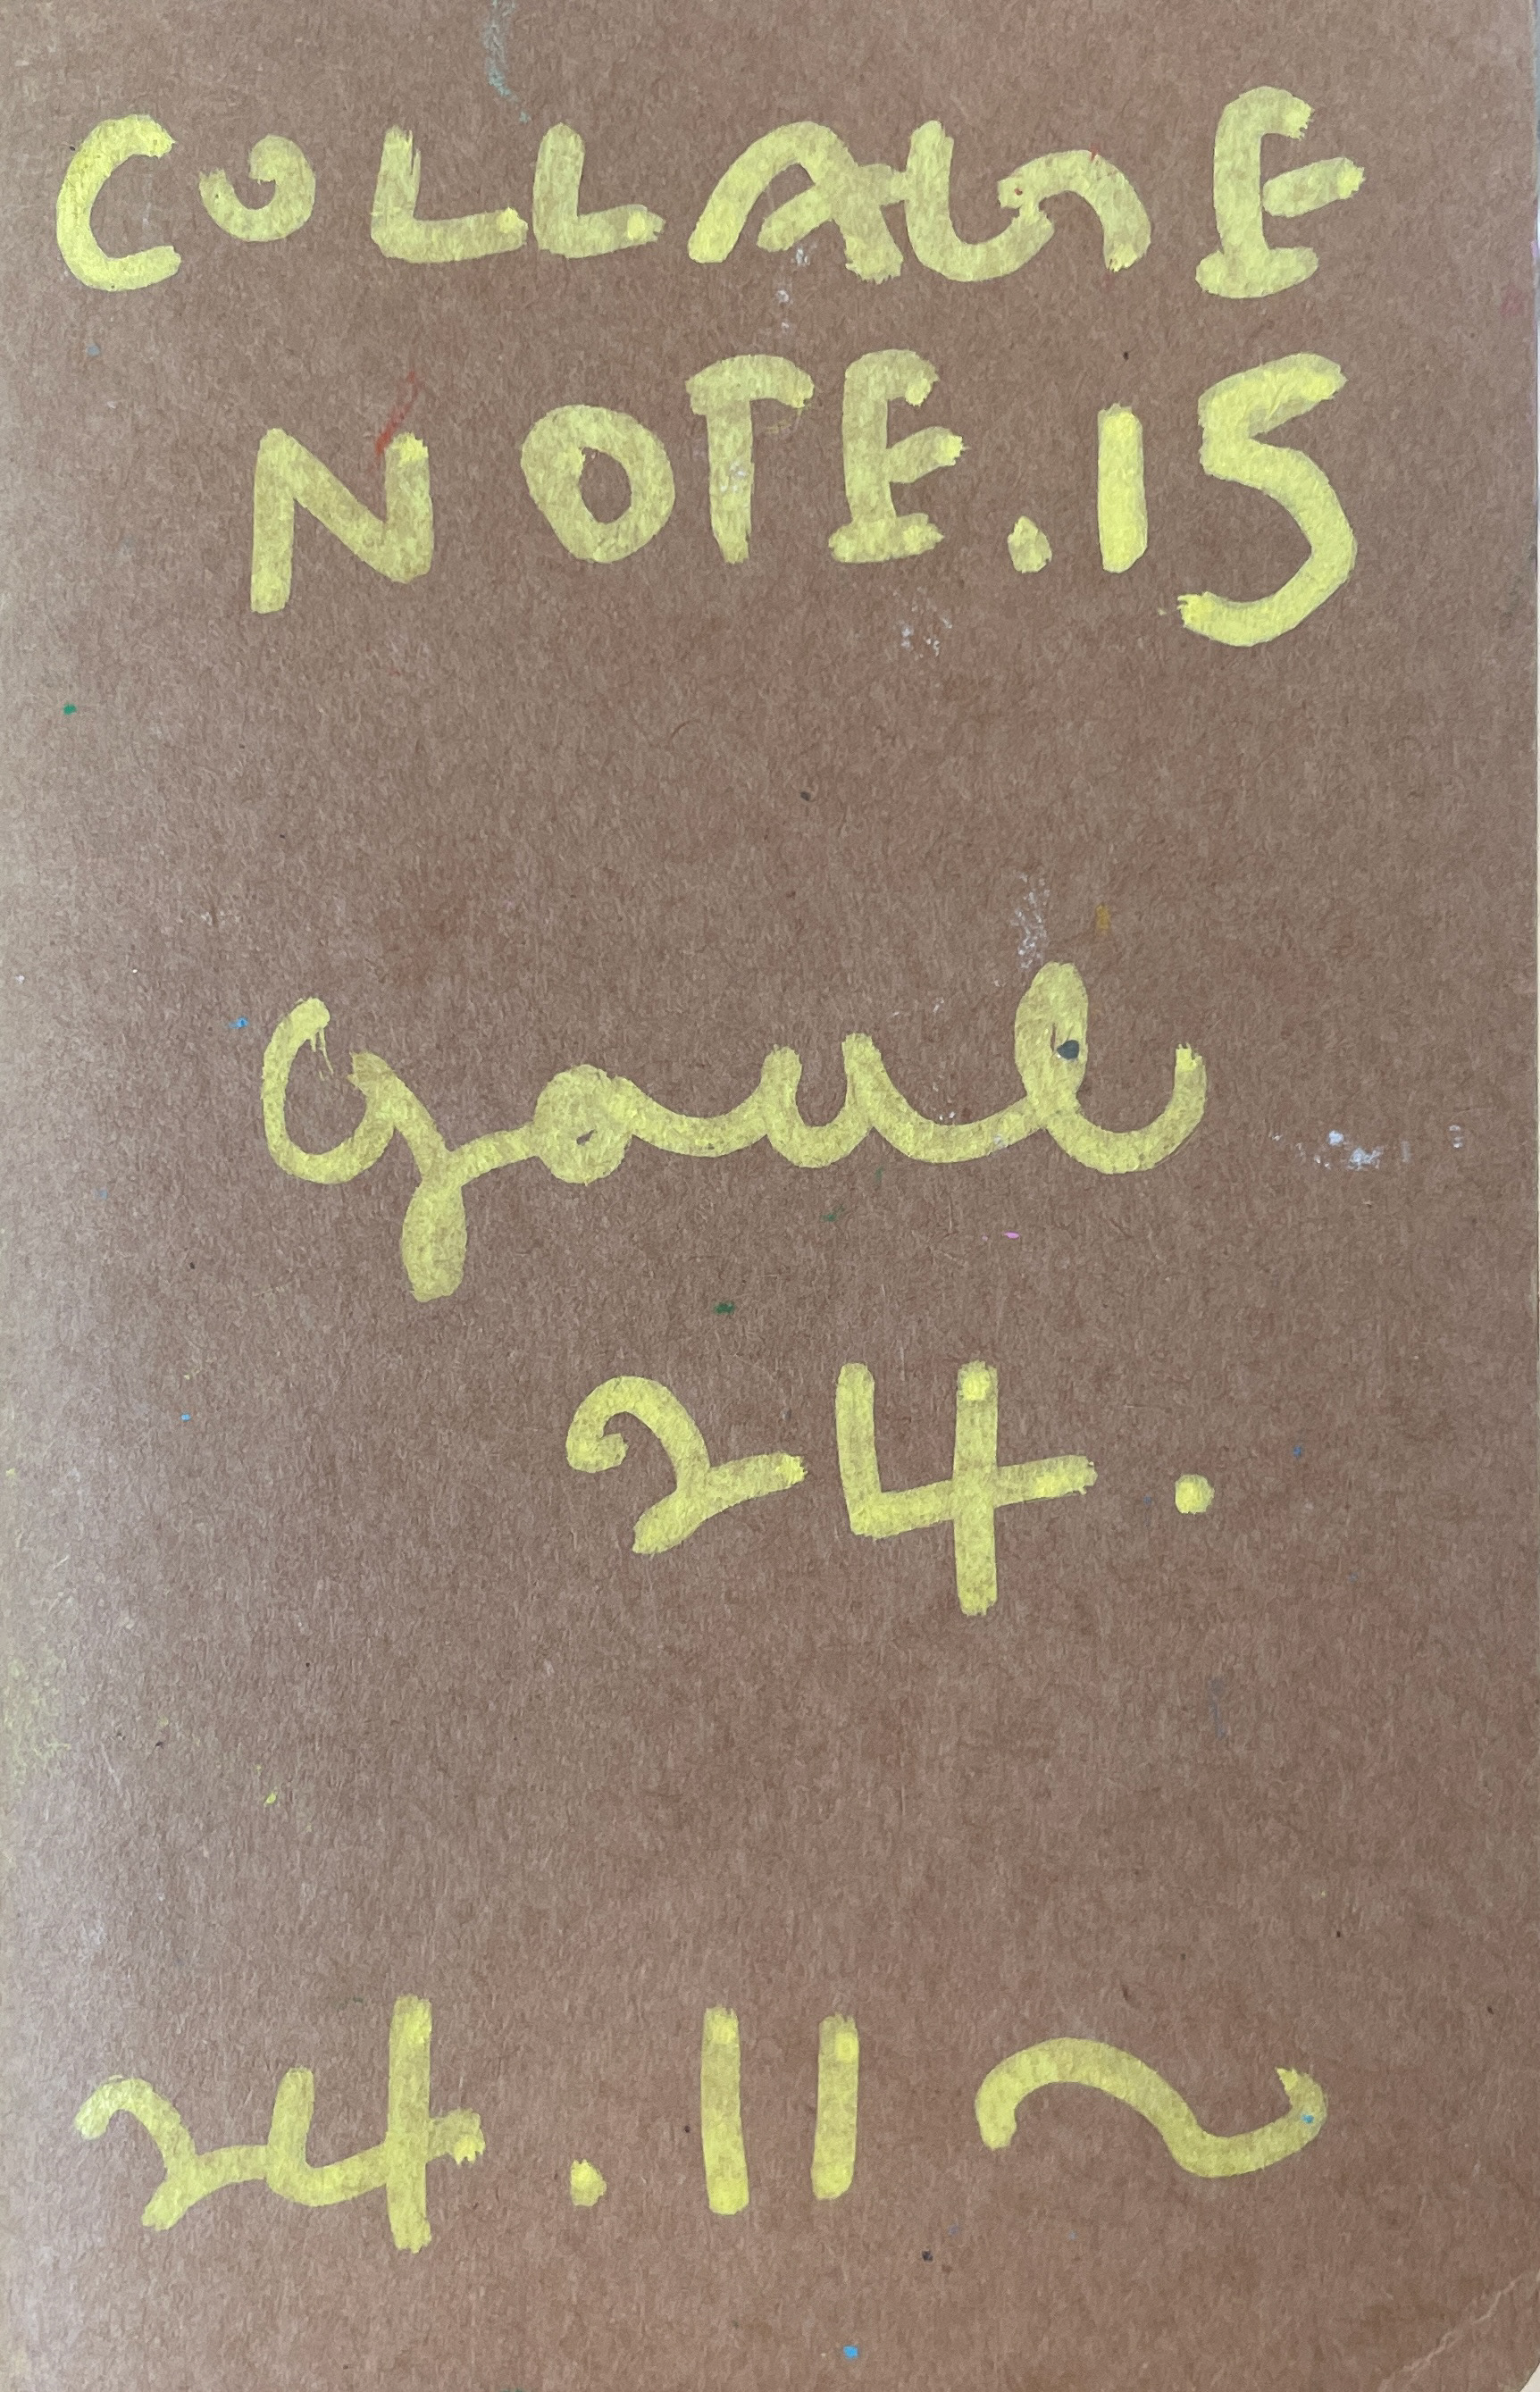 COLLAGE
NOTE.15
gaul
24.
24.11~